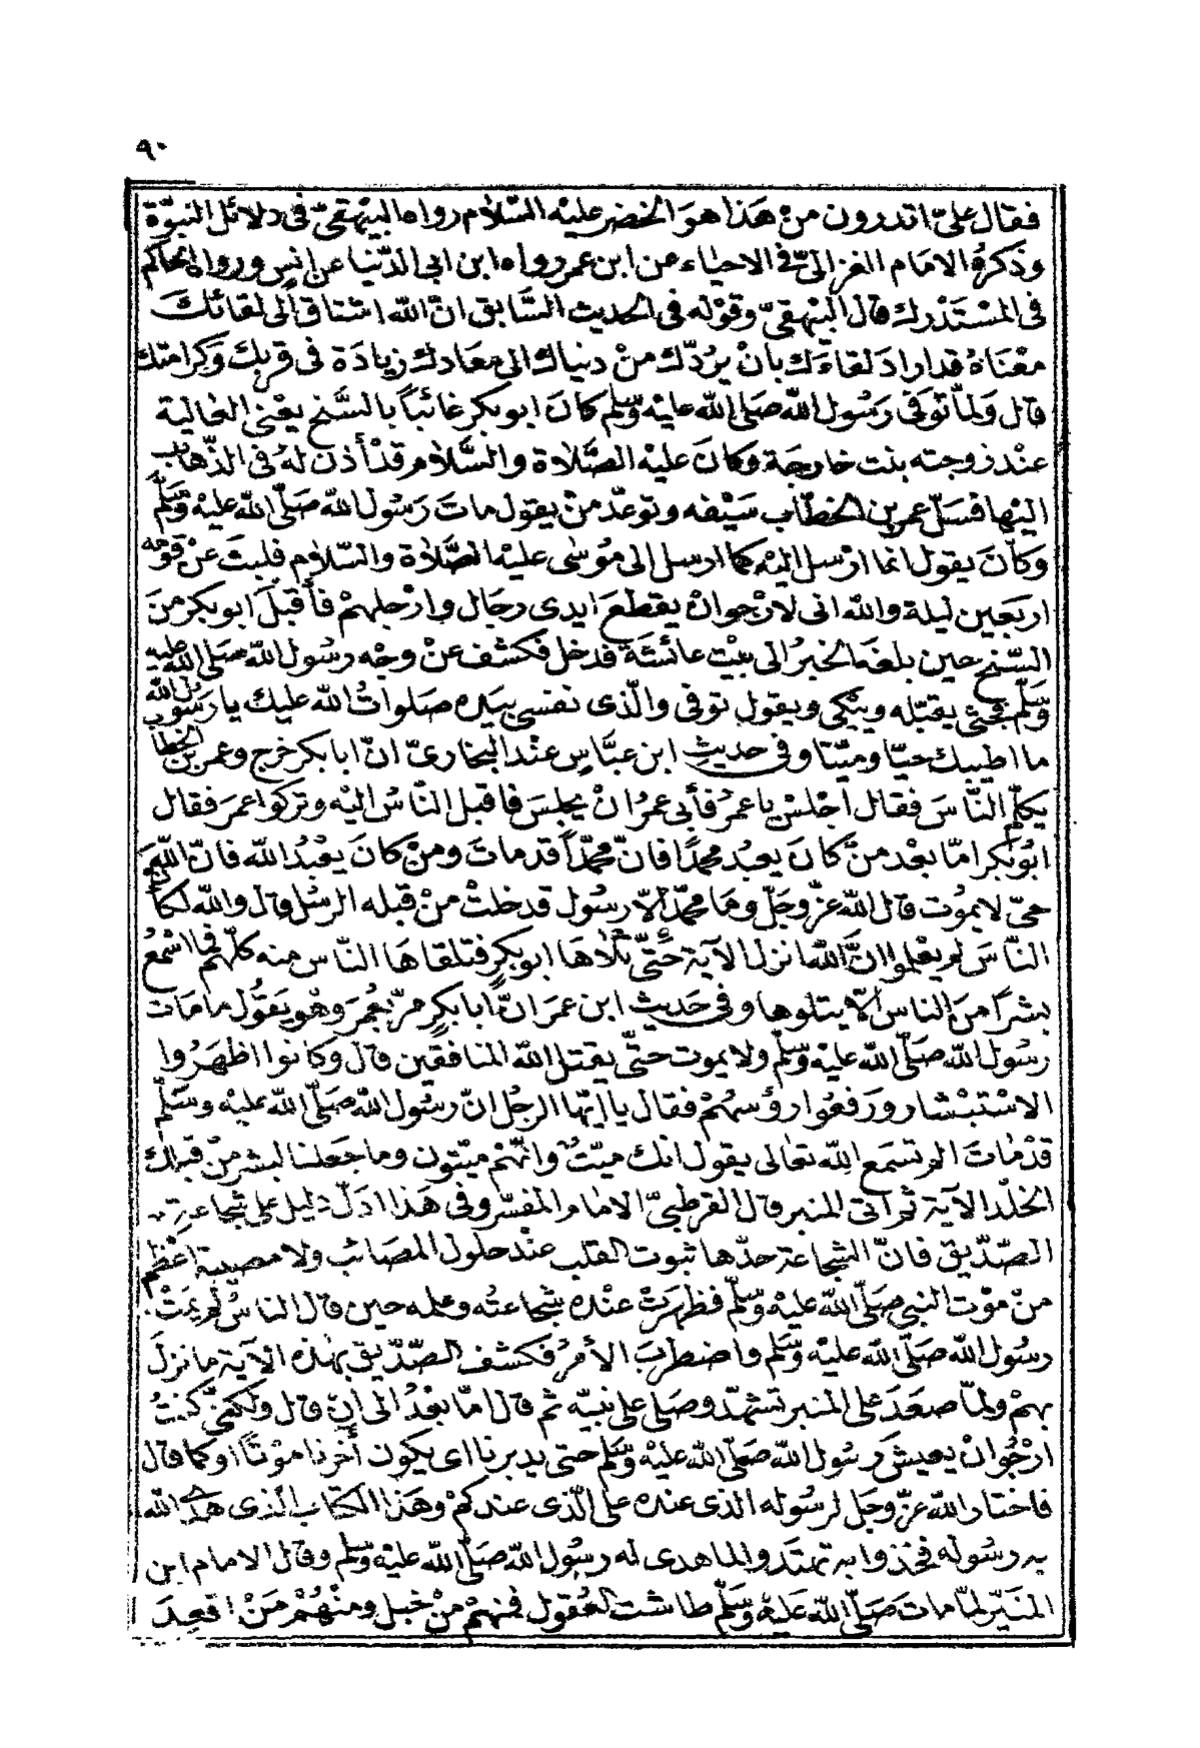 ٩٠
فقال علىّ اتدرون منْ هَذا هوَ الخضر عليْه السّلام رواه البيْهقىّ فى دلائل النبوّة
وذكرهُ الامام الغزالىّ فى الاحياء عن ابن عمر رواه ابن ابى الدّنيا عن انس ورواه الحاكم
فى المسْتدْرك قال البيْهقىّ وقوْله فى الحديث السّابق انّ الله اشتاق الى لقائكَ
معْناهُ قد ارادَ لقاءَك بانْ يرُدّك منْ دنياك الى معَادك زيادَة فى قربكَ وَكرامتك
قال وَلمّا توُفى رَسُول الله صَلى الله عليْه وَسلم كانَ ابو بكر غائباً بالسُّنح يعْنى العَالية
عنْد زوجته بنت خارجَة وكانَ عليْه الصّلاة والسّلام قدْ أذن لهُ فى الذّهاب
اليْها فسَلّ عمر بن الخطّاب سَيْفه وتوعّد منْ يقول ماتَ رَسُول الله صَلّى الله عليْه وَسَلّم
وَكانَ يقول انما ارْسل اليْه كما ارسل الى مُوسٰى عليْه الصَّلاة والسّلام فلبثَ عنْ قوْمه
اربَعين ليلة والله انى لارْجو انْ يقطعَ ايدى رجال وارْجلهمْ فأقبلَ ابو بكر منَ
السّنح حين بلغهَ الخبرُ الى بيْت عائشَة فدخل فكشف عنْ وجْه رسُول الله صَلى الله عليه
وَسَلّم فجثى يقبّله ويبْكى ويقول توفى والّذى نفسى بيَده صَلواتُ الله عليك يا رَسُول الله
ما اطيبك حيّا وميّتا وفى حديثِ ابن عبَّاسٍ عنْد البخارىّ انّ ابا بكر خرج وعمر بن الخطاب
يكلّم النَّاسَ فقال اجْلسْ يا عمرُ فأبى عمرُ انْ يجلسَ فاقبل النَّاسُ اليْه وتركوا عمرَ فقال
ابُو بكر امّا بعْد منْ كانَ يعبُد محمدًا فانّ محمّدًا قد ماتَ ومنْ كانَ يعْبُدُ الله فانّ اللهَ
حىّ لا يمُوت قال الله عزّ وجَلّ وما محمّد الاّ رسُول قد خلتْ منْ قبله الرسُل وقال والله لكأنّ
النّاسَ لم يعْلموا انَّ الله انزل الآية حَتّى تلاها ابو بكرٍ فتلقاهَا النّاس منه كلّهم فما اسْمعُ
بشرًا منَ الناس الاّ يتلوها وفى حَديثِ ابن عمَر انّ أبا بكرٍ مرّ بعُمَر وهْو يَقوُل ما مَات
رسُول الله صَلّى الله عليْه وسَلّم ولا يموت حتّى يقتل الله المنافقين قال وَكانوا اظهَرُوا
الاسْتبْشار ورَفعُوا رؤسهُمْ فقال يا ايّها الرجُل انّ رسُول الله صَلّى الله عليْه وسَلّم
قدْ ماتَ الم تسْمع الله تعالى يقول انك ميّتُ وانّهمْ ميّتون وما جَعلنا لبشر منْ قبلك
الخلْد الآية ثم أتى المنبر قال القرطبىّ الامام المفسّر وفى هَذا ادَلّ دليل على شجاعَةِ
الصّدّيق فانّ الشجاعَة حدّها ثبوت القلب عنْد حلول المصَائب ولا مصيبة اعْظم
منْ موْت النبى صَلّى الله عليْه وَسلّم فظهرَتْ عنْده شجاعتُه وعلمه حين قال الناسُ لم يَمُتْ
رسُول الله صَلّى الله عليْه وَسَلّم واضطربَ الأمْرُ فكشف الصّدّيق بهٰذه الآية ما نزلَ
بهمْ ولمّا صعَدَ على المنبر تشهّد وصَلى على نبيّه ثم قال امّا بعْدُ الى ان قال ولكنّى كنْتُ
ارْجُو انْ يعيشَ رسُول الله صَلّى الله عليْه وَسَلّم حتى يدبرنا اى يكون أخرنا موْتًا او كما قال
فاختار الله عزّ وجَل لرسُوله الذى عنده على الّذى عندكمْ وهَذا الكتاب الّذى هدى الله
به رسُوله فخذوا به تهتَدوا لما هدى له رسُول الله صَلّى الله عليْه وسَلّم وقال الامام ابن
المنَيّر لمّا مات صَلّى الله عَليْه وَسَلّم طاشت العُقول فمنهمْ منْ خبل ومنْهُمْ مَنْ اقعِدَ